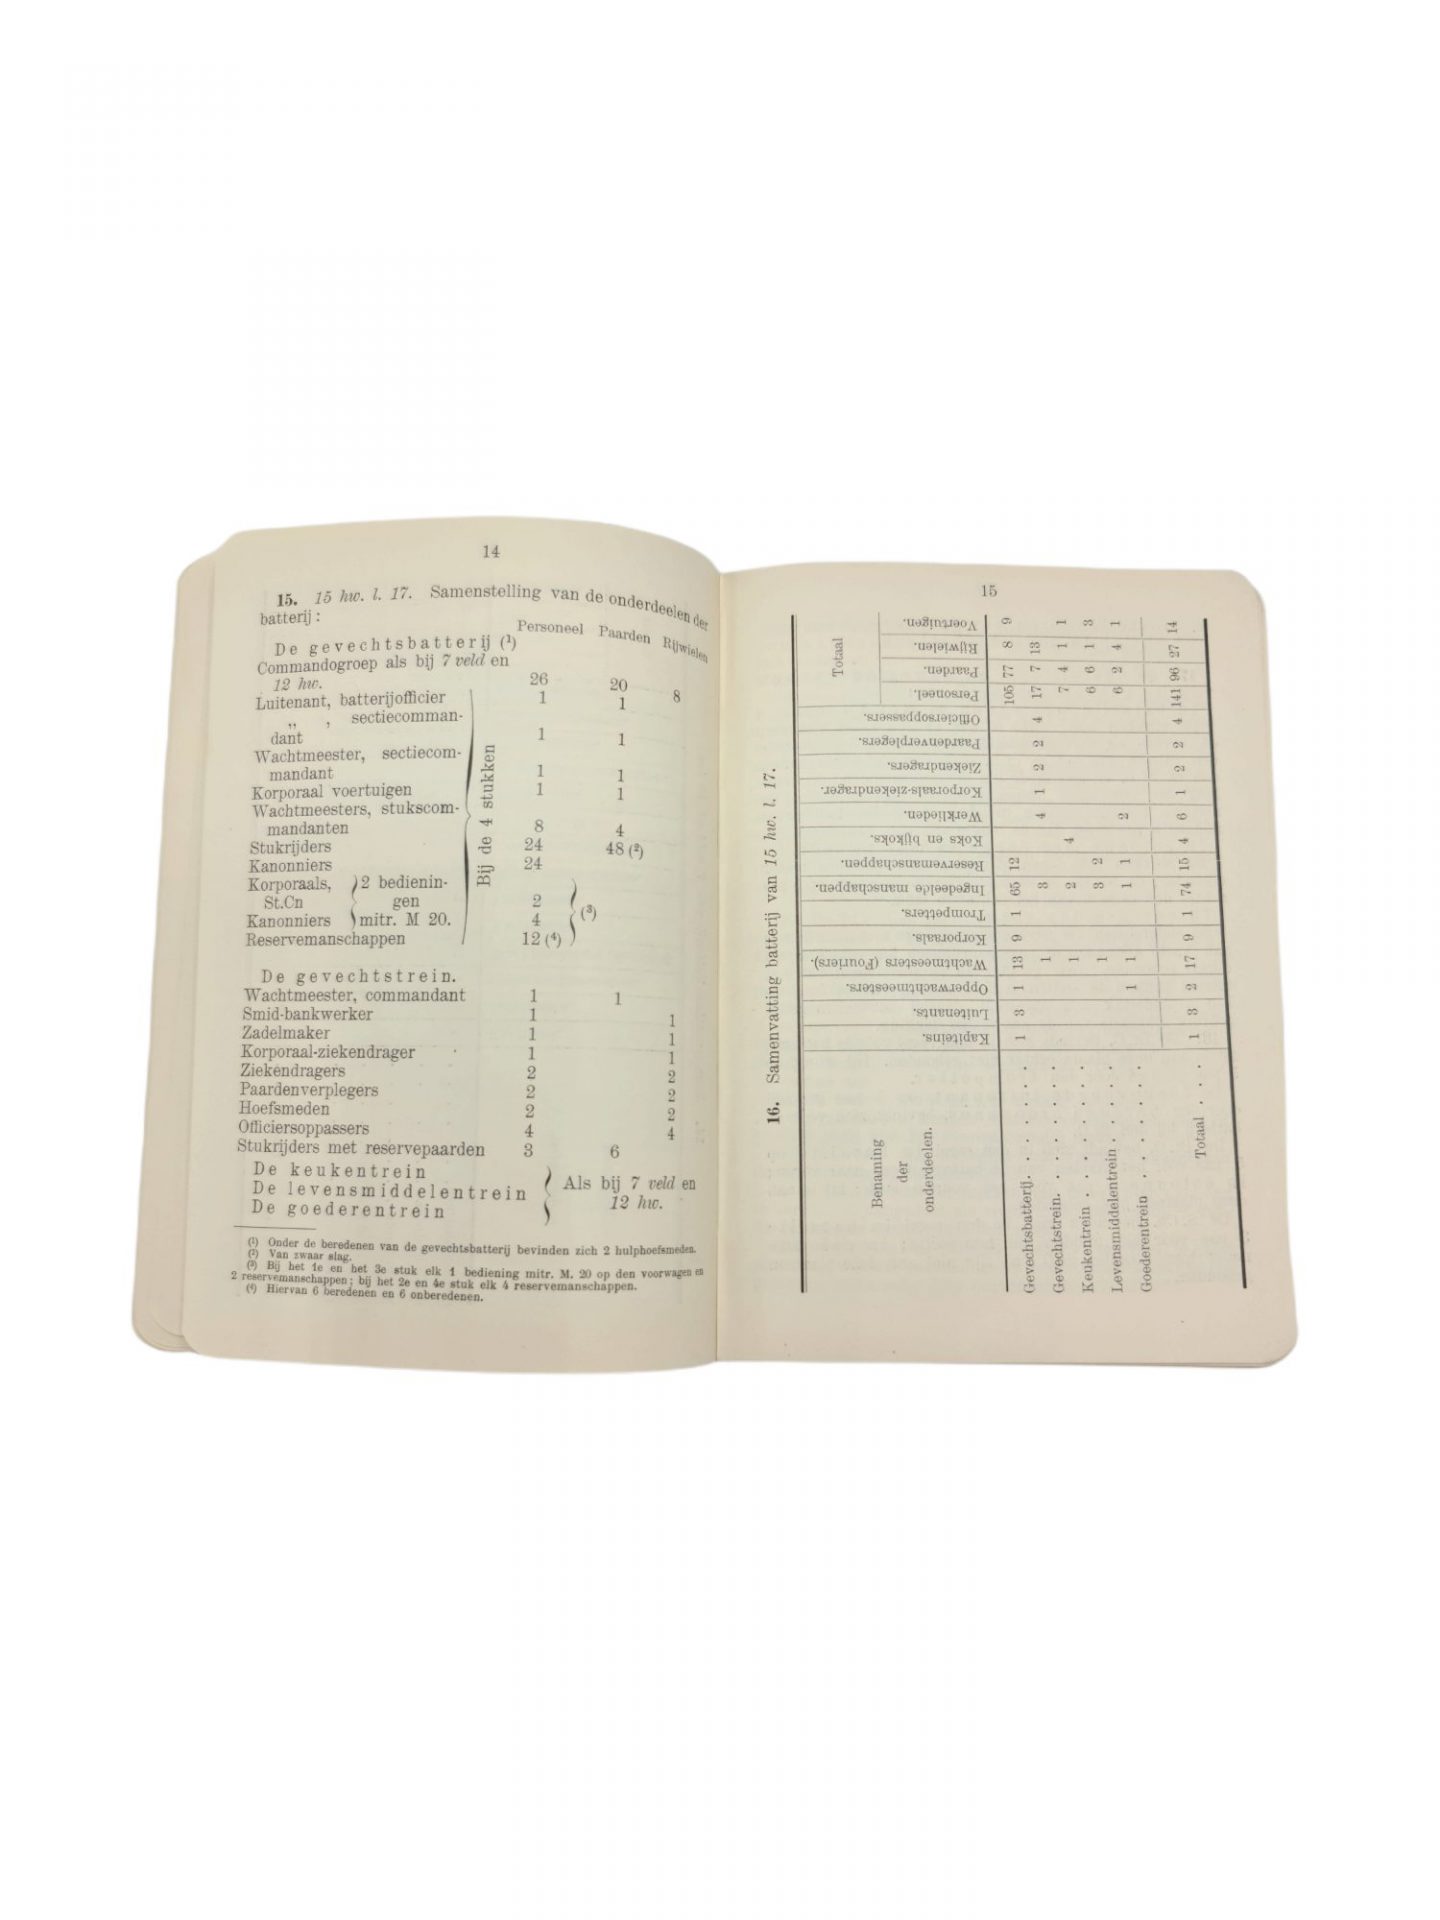 14
15. 15 hw. l. 17. Samenstelling van de onderdeelen der
batterij :
Personeel Paarden Rijwielen
De gevechtsbatterij (¹)
Commandogroep als bij 7 veld en
12 hw. 26 20 8
Luitenant, batterijofficier 1 1
„ , sectiecomman-
dant 1 1
Wachtmeester, sectiecom-
mandant 1 1
Korporaal voertuigen 1 1
Wachtmeesters, stukscom-
mandanten 8 4
Stukrijders 24 48 (²)
Kanonniers 24
Korporaals, 2 bedienin-
St.Cn gen 2
Kanonniers mitr. M 20. 4 (³)
Reservemanschappen 12 (⁴)
Bij de 4 stukken
De gevechtstrein.
Wachtmeester, commandant 1 1
Smid-bankwerker 1 1
Zadelmaker 1 1
Korporaal-ziekendrager 1 1
Ziekendragers 2 2
Paardenverplegers 2 2
Hoefsmeden 2 2
Officiersoppassers 4 4
Stukrijders met reservepaarden 3 6
De keukentrein
De levensmiddelentrein Als bij 7 veld en
De goederentrein 12 hw.
(¹) Onder de beredenen van de gevechtsbatterij bevinden zich 2 hulphoefsmeden.
(²) Van zwaar slag.
(³) Bij het 1e en het 3e stuk elk 1 bediening mitr. M. 20 op den voorwagen en
2 reservemanschappen; bij het 2e en 4e stuk elk 4 reservemanschappen.
(⁴) Hiervan 6 beredenen en 6 onberedenen.
15
16. Samenvatting batterij van 15 hw. l. 17.
Benaming
der
onderdeelen.
Kapiteins.
Luitenants.
Opperwachtmeesters.
Wachtmeesters (Fouriers).
Korporaals.
Trompetters.
Ingedeelde manschappen.
Reservemanschappen.
Koks en bijkoks.
Werklieden.
Korporaals-ziekendrager.
Ziekendragers.
Paardenverplegers.
Officiersoppassers.
Totaal
Personeel.
Paarden.
Rijwielen.
Voertuigen.
Gevechtsbatterij . . . . . . . 1 3 1 13 9 1 65 12 105 77 8 9
Gevechtstrein. . . . . . . . 1 3 4 1 2 2 4 17 7 13
Keukentrein . . . . . . . 1 2 4 7 4 1 1
Levensmiddelentrein . . . . . 1 3 2 6 6 1 3
Goederentrein . . . . . . 1 1 1 1 2 6 2 4 1
Totaal . . . 1 3 2 17 9 1 74 15 4 6 1 2 2 4 141 96 27 14